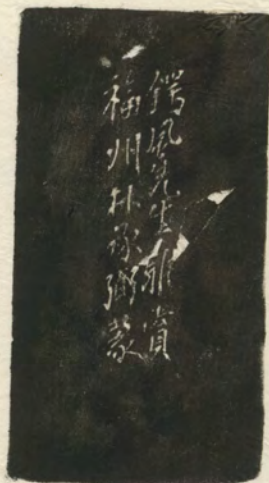 鍔風先生雅賞
福州朴承弼篆